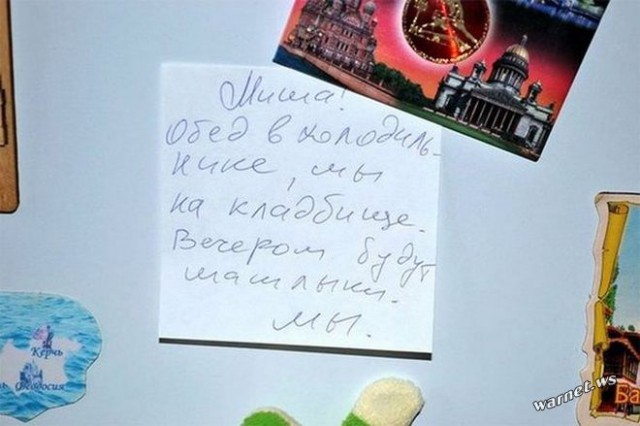 Миша!
Обед в холодиль-
нике, мы
на кладбище.
Вечером будут
шашлыки.
Мы.
Керчь
Феодосия
Ба
warnet.ws